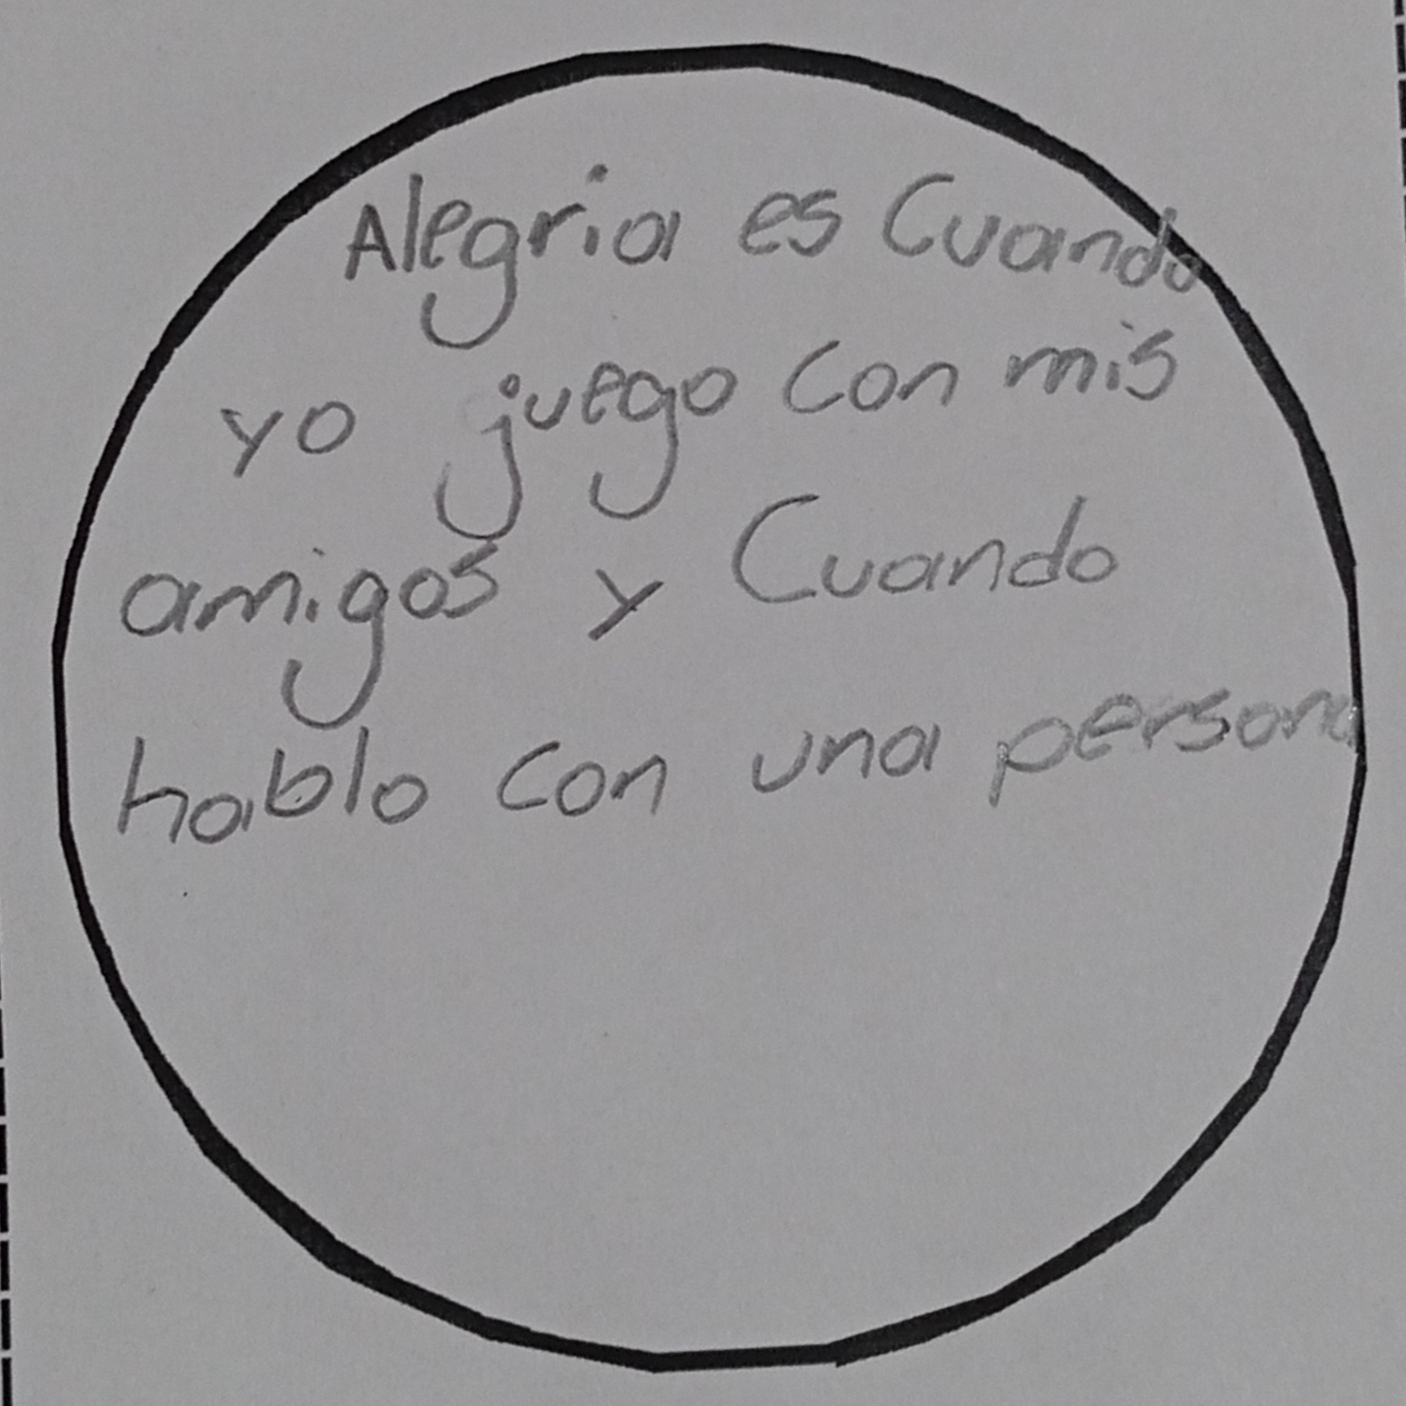 Alegria es Cuando
yo juego con mis
amigos y Cuando
hablo con una persona